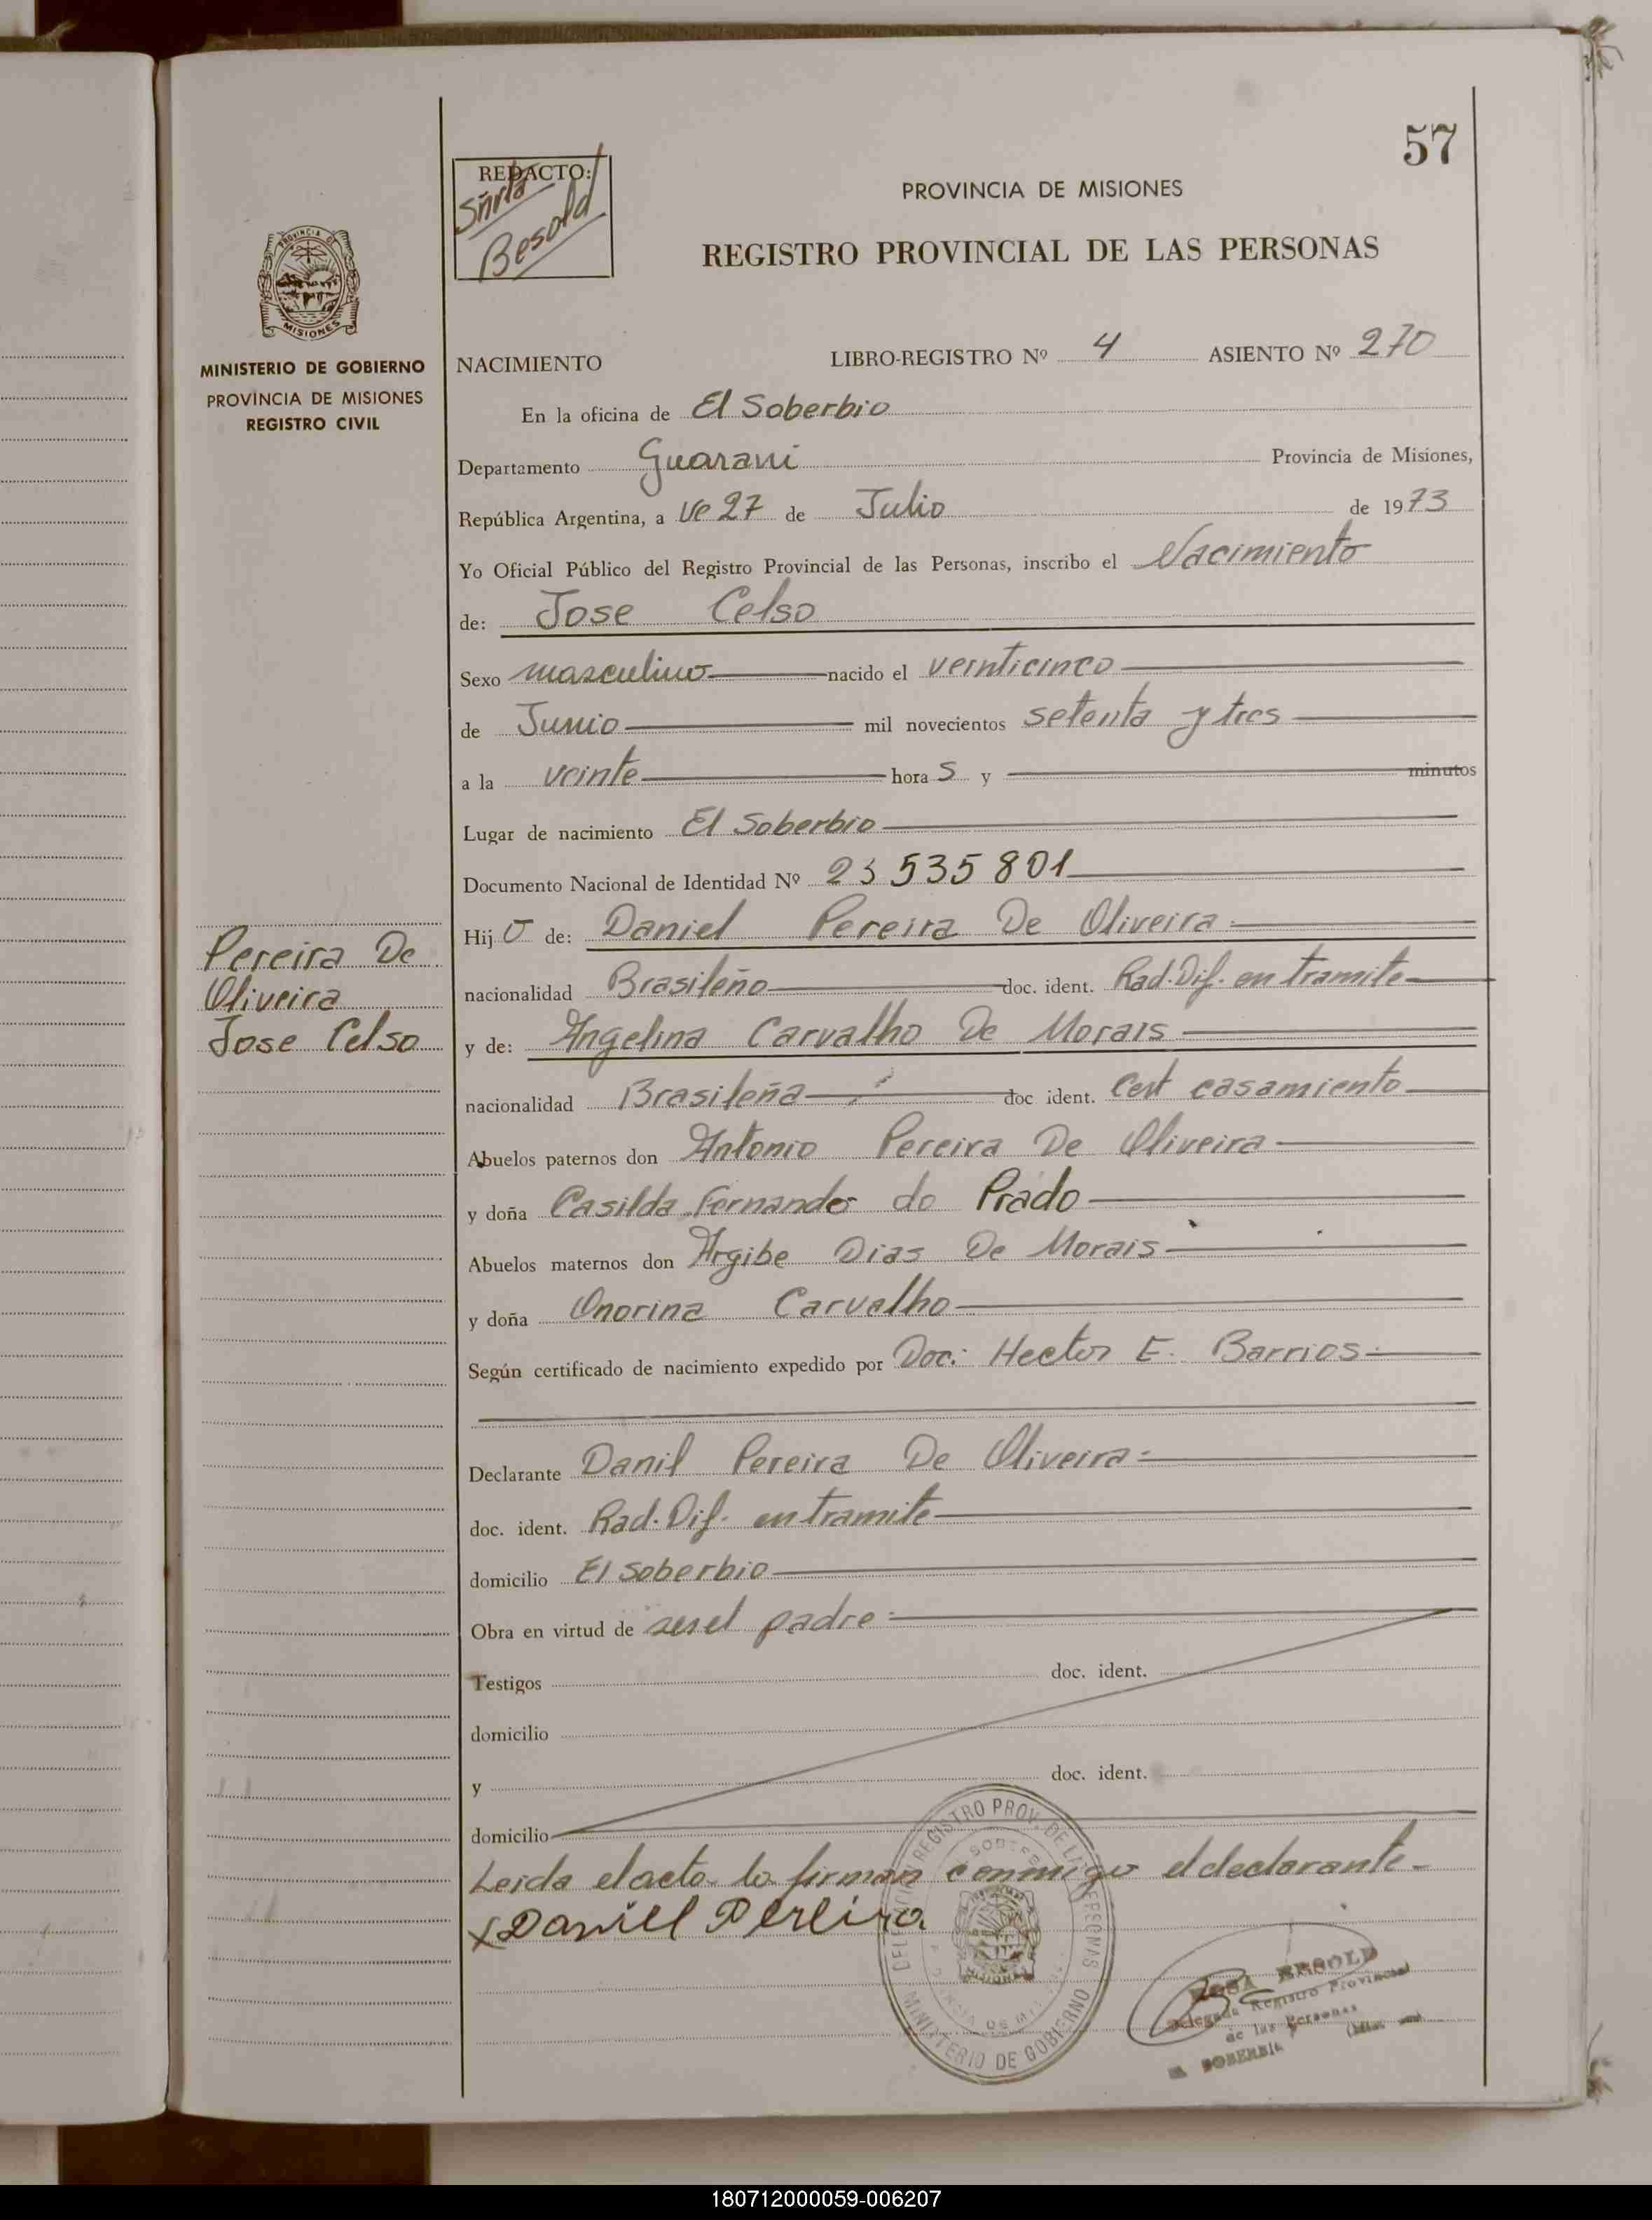 57
REDACTO:
Sñrta
Besold
PROVINCIA DE MISIONES
REGISTRO PROVINCIAL DE LAS PERSONAS
PROVINCIA DE
MISIONES
MINISTERIO DE GOBIERNO
PROVINCIA DE MISIONES
REGISTRO CIVIL
NACIMIENTO LIBRO-REGISTRO Nº 4 ASIENTO Nº 270
En la oficina de El Soberbio
Departamento Guarani Provincia de Misiones,
República Argentina, a ve 27 de Julio de 1973
Yo Oficial Público del Registro Provincial de las Personas, inscribo el Nacimiento
de: Jose Celso
Sexo masculino nacido el veinticinco
de Junio mil novecientos setenta y tres
a la veinte hora s y minutos
Lugar de nacimiento El Soberbio
Documento Nacional de Identidad Nº 23 535 801
Hij o de: Daniel Pereira De Oliveira
nacionalidad Brasileño doc. ident. Rad. Dif. en tramite
y de: Angelina Carvalho De Morais
nacionalidad Brasileña doc ident. Cert casamiento
Abuelos paternos don Antonio Pereira De Oliveira
y doña Casilda Fernandes do Prado
Abuelos maternos don Argibe Dias De Morais
y doña Onorina Carvalho
Según certificado de nacimiento expedido por Doc: Hector E. Barrios
Declarante Danil Pereira De Oliveira
doc. ident. Rad. Dif. en tramite
domicilio El Soberbio
Obra en virtud de ser el padre
Testigos doc. ident.
domicilio
y doc. ident.
domicilio
Leida el acta la firman conmigo el declarante
X Daniel Pereira
Pereira De
Oliveira
Jose Celso
REGISTRO PROV. DE LAS PERSONAS
MINISTERIO DE GOBIERNO
ROSA BESOLD
Delegada Registro Provincial
de las Personas
EL SOBERBIO
180712000059-006207